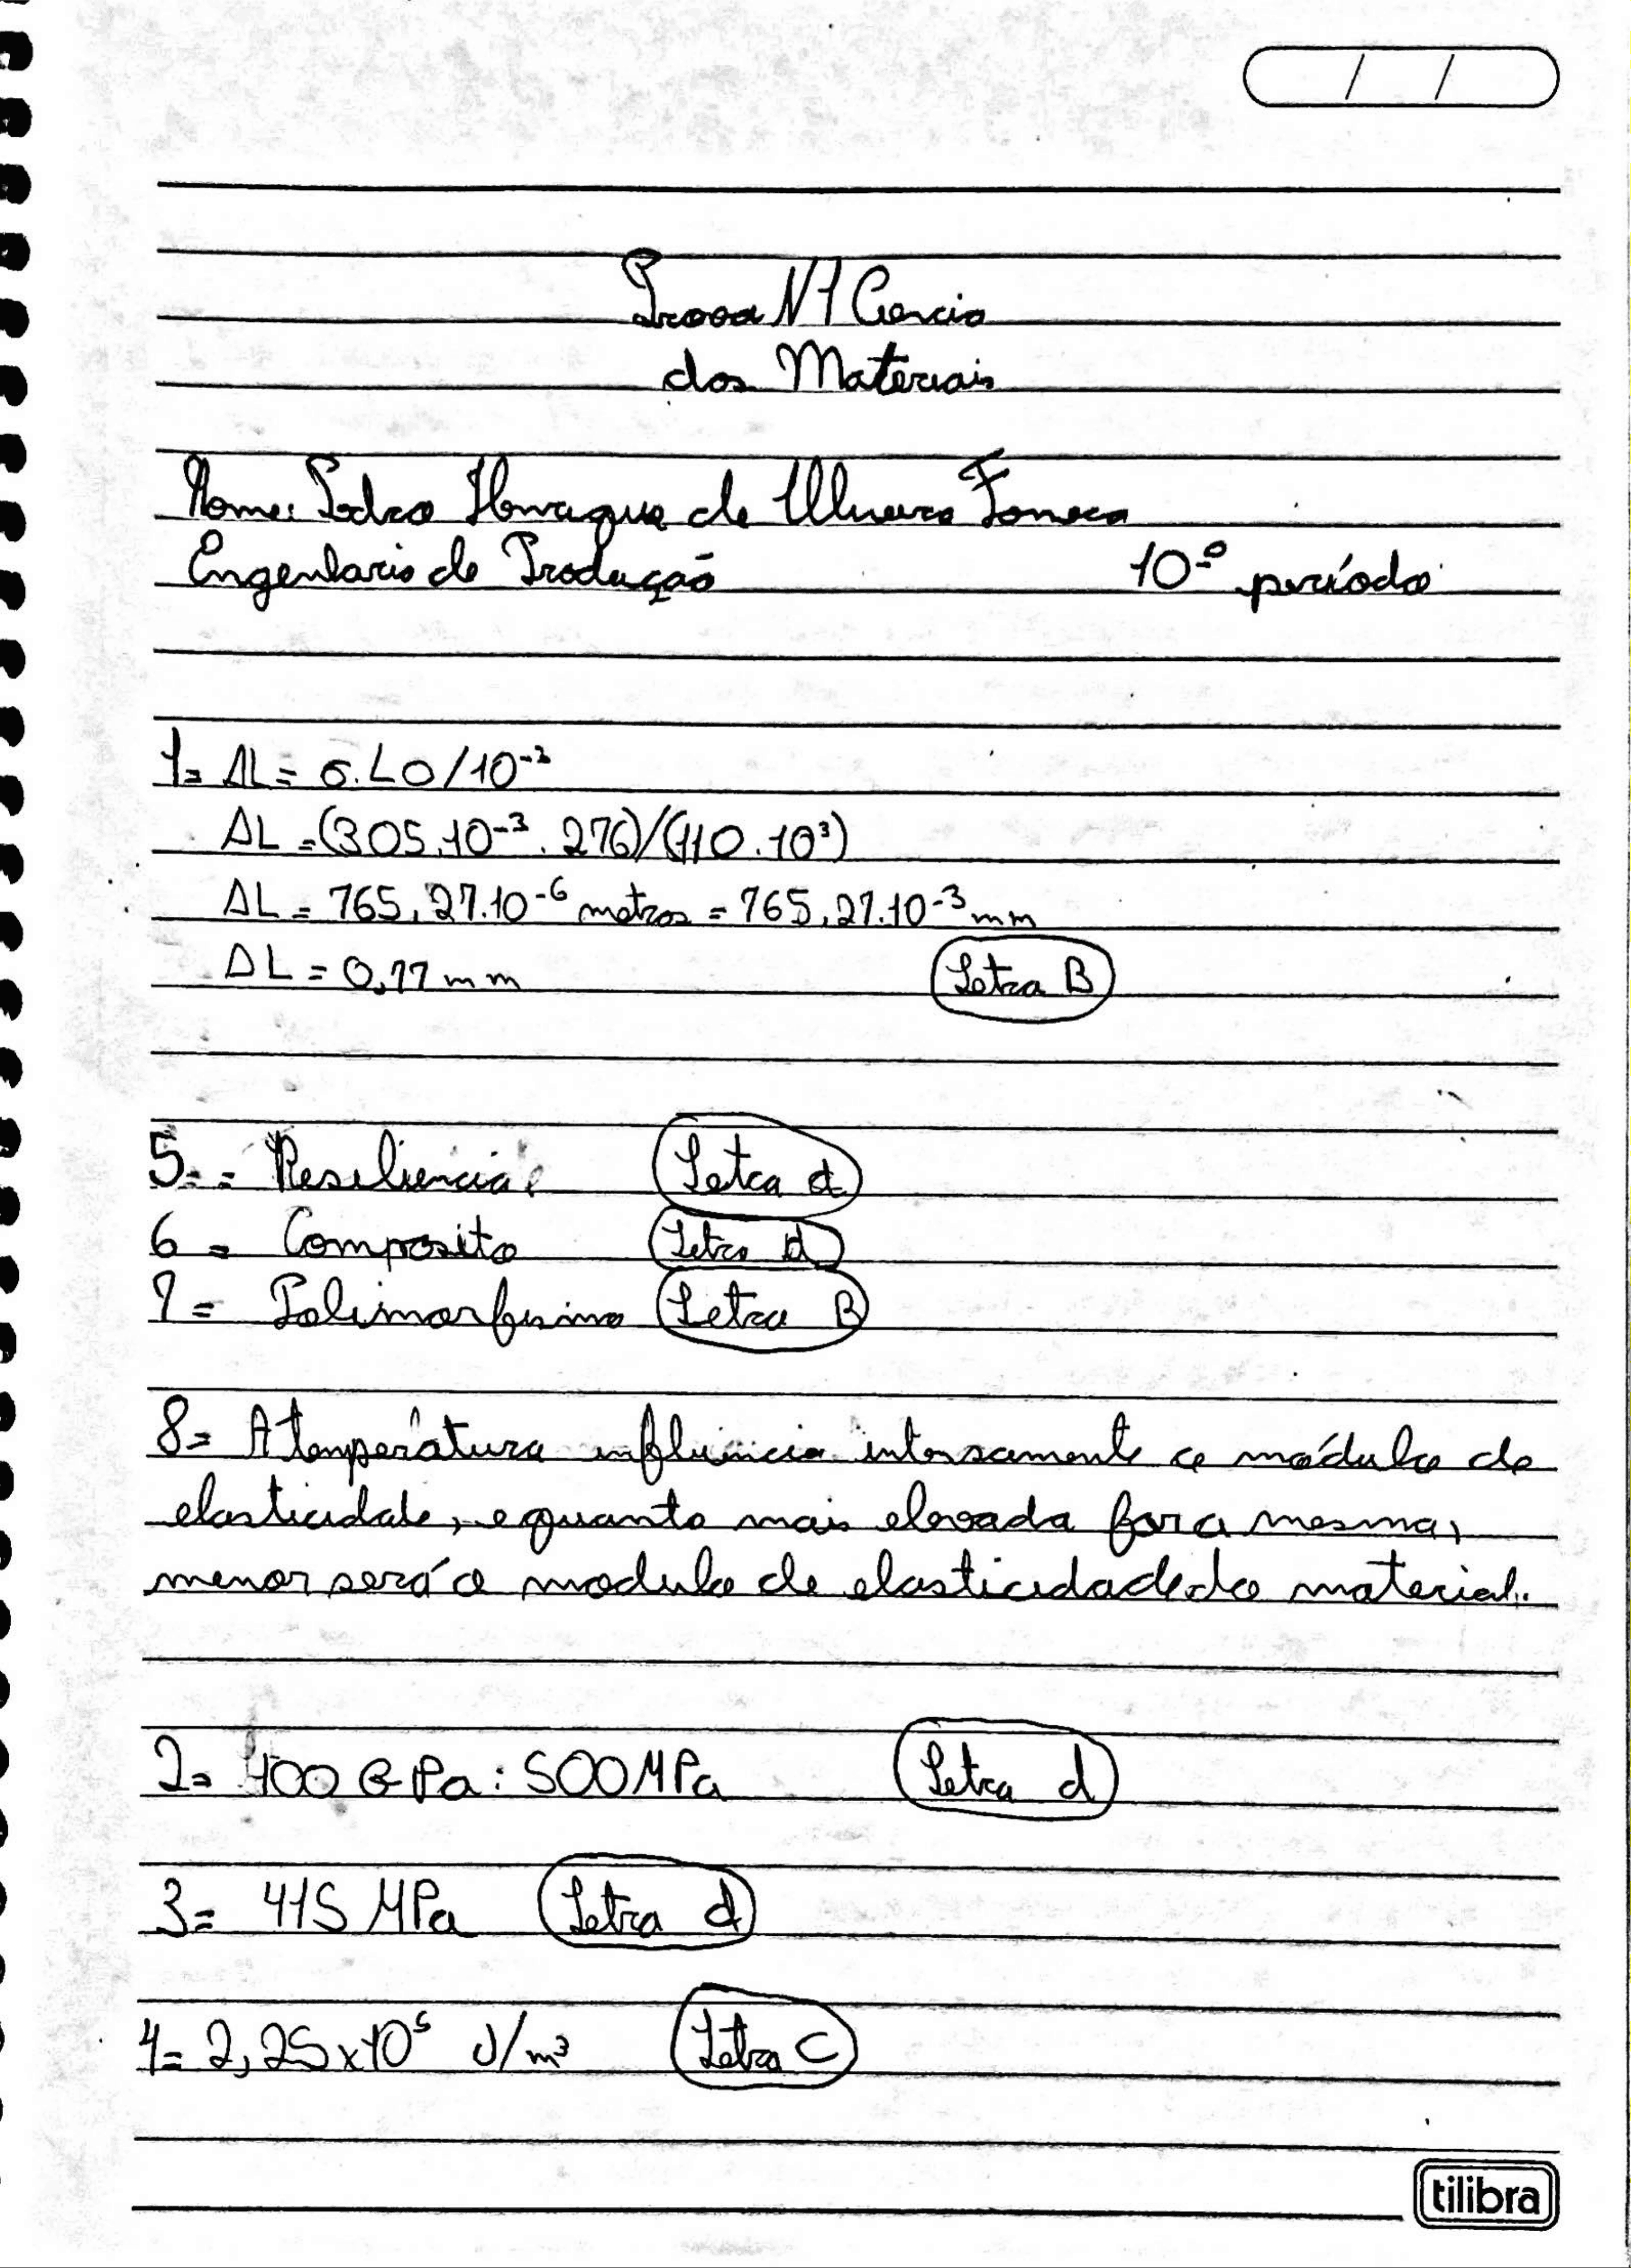 / /
Prova N1 Ciencia
dos Materiais
Nome: Pedro Henrique de Oliveira Fonseca
Engenharia de Produção 10º período
1= ΔL = σ.L0/10⁻³
ΔL = (305.10⁻³ . 276)/(110.10³)
ΔL = 765,27.10⁻⁶ metros = 765,27.10⁻³ mm
ΔL = 0,77 mm Letra B
5.= Resiliencia Letra d
6 = Composito Letra d
7= Polimorfismo Letra B
8= A temperatura influência intensamente o módulo de
elasticidade, e quanto mais elevada for a mesma,
menor será o modulo de elasticidade do material.
2= 400 GPa : 500 MPa Letra d
3= 415 MPa Letra d
4= 2,25x10⁵ J/m³ Letra C
tilibra